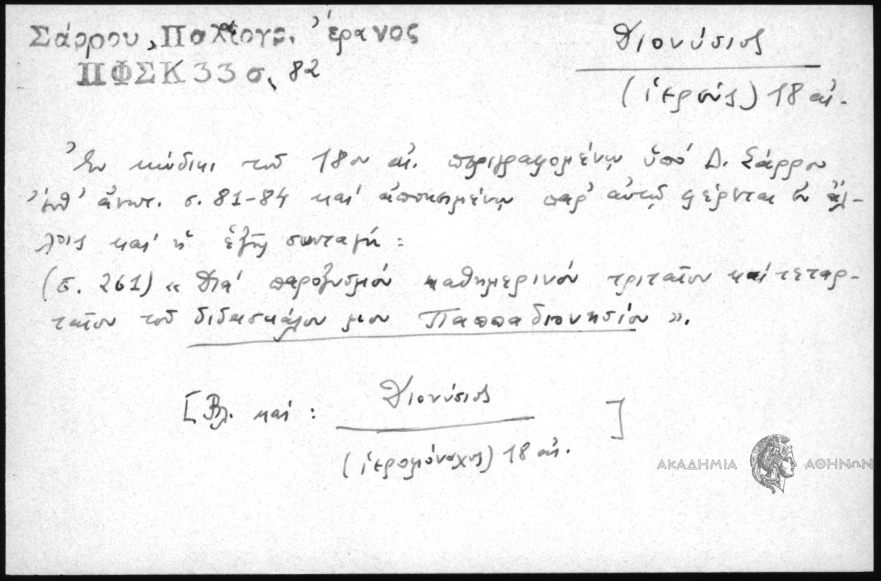 Σάρρου, Παλαιογρ. Ἔρανος
ΠΦΣΚ 33 σ. 82
Διονύσιος
(ἱερεύς) 18 αἰ.
Ἐν κώδικι τοῦ 18ου αἰ. περιγραφομένῳ ὑπό Δ. Σάρρου
ἔνθ' ἄνωτ. σ. 81-84 καί ἀποκειμένῳ παρ' αὐτῷ φέρεται ἐν ἄλ-
λοις καί ἡ ἑξῆς συνταγή:
(σ. 261) « Διά παροξυσμόν καθημερινόν τριταῖον καί τεταρ-
ταῖον τοῦ διδασκάλου μου Παππαδιονησίου ».
[Βλ. καί: Διονύσιος ]
(ἱερομόναχος) 18 αἰ.
ΑΚΑΔΗΜΙΑ ΑΘΗΝΩΝ